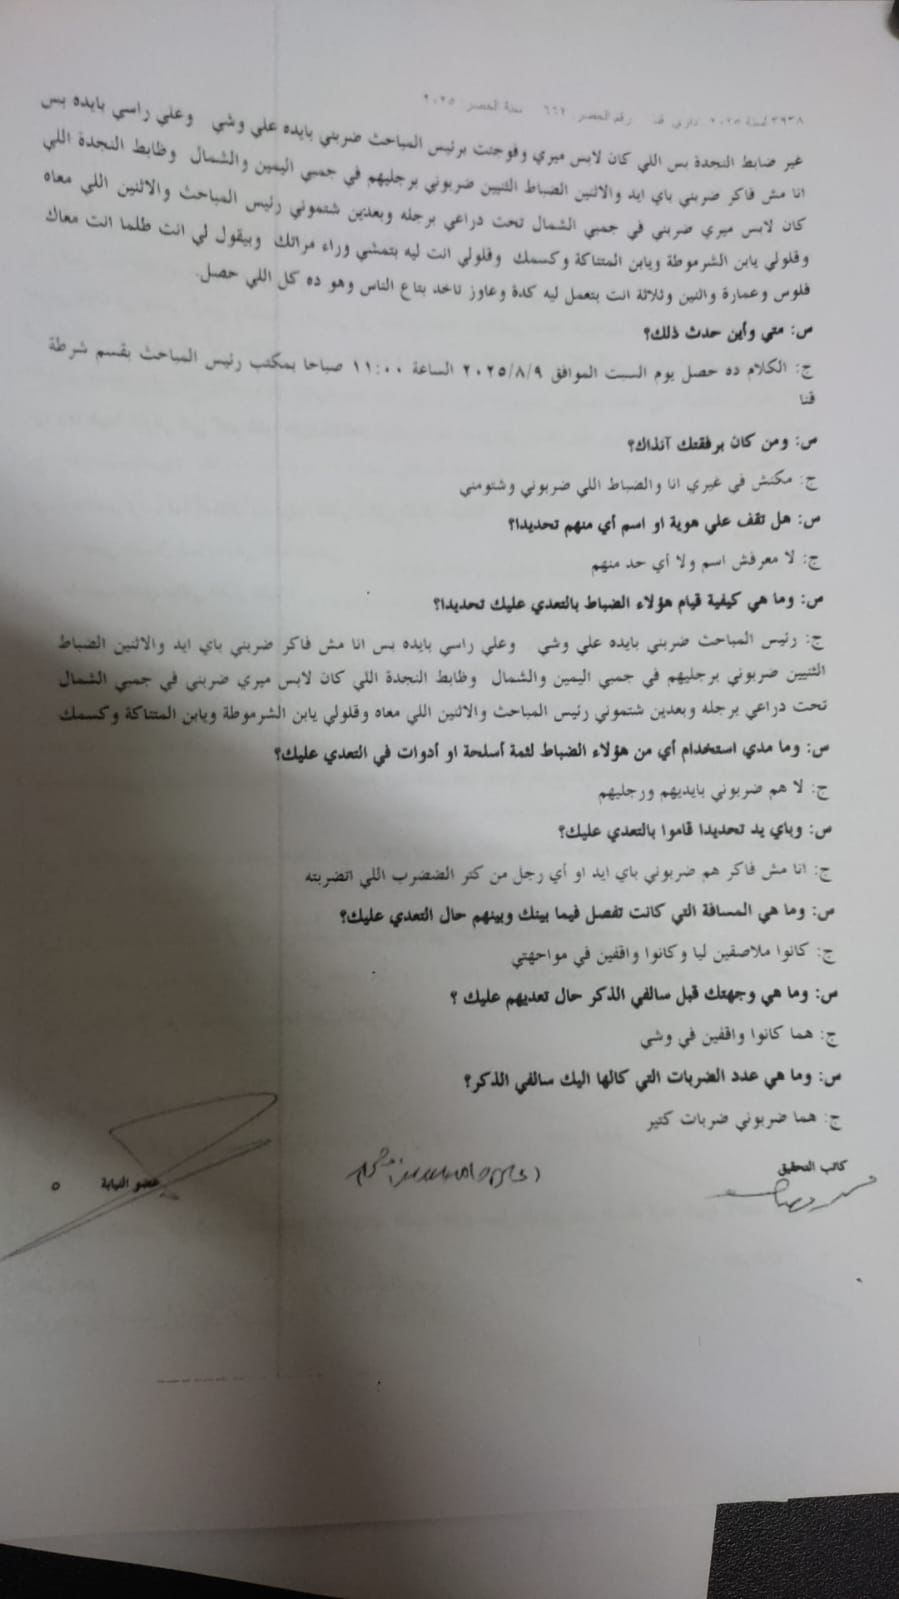 ٣٩٣٨ لسنة ٢٠٢٥ إداري قنا رقم الحصر: ٦٦٢ سنة الحصر: ٢٠٢٥
غير ضابط النجدة بس اللي كان لابس ميري وفوجئت برئيس المباحث ضربني بايده علي وشي وعلي راسي بايده بس
انا مش فاكر ضربني باي ايد والاثنين الضباط التنيين ضربوني برجليهم في جمبي اليمين والشمال وظابط النجدة اللي
كان لابس ميري ضربني في جمبي الشمال تحت دراعي برجله وبعدين شتموني رئيس المباحث والاثنين اللي معاه
وقلولي يابن الشرموطة ويابن المتناكة وكسمك وقلولي انت ليه بتمشي وراء مراتك وبيقول لي انت طلما انت معاك
فلوس وعمارة واتنين وثلاثة انت بتعمل ليه كدة وعاوز تاخد بتاع الناس وهو ده كل اللي حصل.
س: متي وأين حدث ذلك؟
ج: الكلام ده حصل يوم السبت الموافق ٢٠٢٥/٨/٩ الساعة ١١:٠٠ صباحا بمكتب رئيس المباحث بقسم شرطة
قنا
س: ومن كان برفقتك آنذاك؟
ج: مكنش في غيري انا والضباط اللي ضربوني وشتومني
س: هل تقف علي هوية او اسم أي منهم تحديدا؟
ج: لا معرفش اسم ولا أي حد منهم
س: وما هي كيفية قيام هؤلاء الضباط بالتعدي عليك تحديدا؟
ج: رئيس المباحث ضربني بايده علي وشي وعلي راسي بايده بس انا مش فاكر ضربني باي ايد والاثنين الضباط
التنيين ضربوني برجليهم في جمبي اليمين والشمال وظابط النجدة اللي كان لابس ميري ضربني في جمبي الشمال
تحت دراعي برجله وبعدين شتموني رئيس المباحث والاثنين اللي معاه وقلولي يابن الشرموطة ويابن المتناكة وكسمك
س: وما مدي استخدام أي من هؤلاء الضباط لثمة أسلحة او أدوات في التعدي عليك؟
ج: لا هم ضربوني بايديهم ورجليهم
س: وباي يد تحديدا قاموا بالتعدي عليك؟
ج: انا مش فاكر هم ضربوني باي ايد او أي رجل من كتر الضضرب اللي اتضربته
س: وما هي المسافة التي كانت تفصل فيما بينك وبينهم حال التعدي عليك؟
ج: كانوا ملاصقين ليا وكانوا واقفين في مواجهتي
س: وما هي وجهتك قبل سالفي الذكر حال تعديهم عليك ؟
ج: هما كانوا واقفين في وشي
س: وما هي عدد الضربات التي كالها اليك سالفي الذكر؟
ج: هما ضربوني ضربات كتير
كاتب التحقيق
عضو النيابة
٥